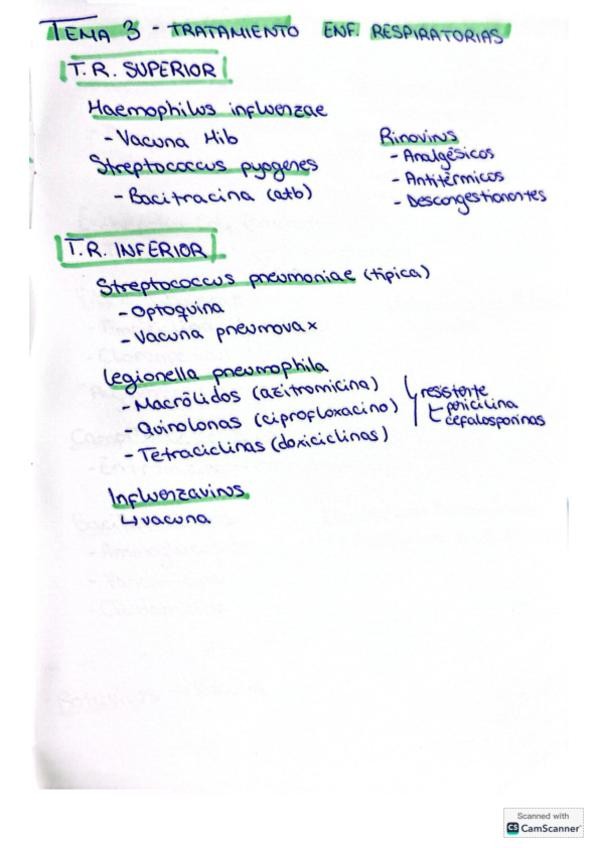 TEMA 3 - TRATAMIENTO ENF. RESPIRATORIAS
T.R. SUPERIOR
Haemophilus influenzae
- Vacuna Hib
Streptococcus pyogenes
- Bacitracina (atb)
Rinovirus
- Analgésicos
- Antitérmicos
- Descongestionantes
T.R. INFERIOR
Streptococcus pneumoniae (típica)
- Optoquina
- Vacuna pneumovax
Legionella pneumophila
- Macrólidos (azitromicina)
- Quinolonas (ciprofloxacino)
- Tetraciclinas (doxiciclinas)
resistente
penicilina
cefalosporinas
Influenzavirus
↳ vacuna
Scanned with
CS CamScanner